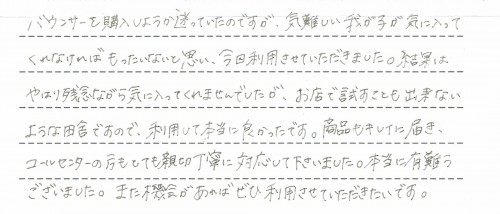 バウンサーを購入しようか迷っていたのですが、気難しい我が子が気に入って
くれなければもったいないと思い、今回利用させていただきました。結果は
やはり残念ながら気に入ってくれませんでしたが、お店で試すことも出来ない
ような田舎ですので、利用して本当に良かったです。商品もキレイに届き、
コールセンターの方もとても親切丁寧に対応して下さいました。本当に有難う
ございました。また機会があればぜひ利用させていただきたいです。